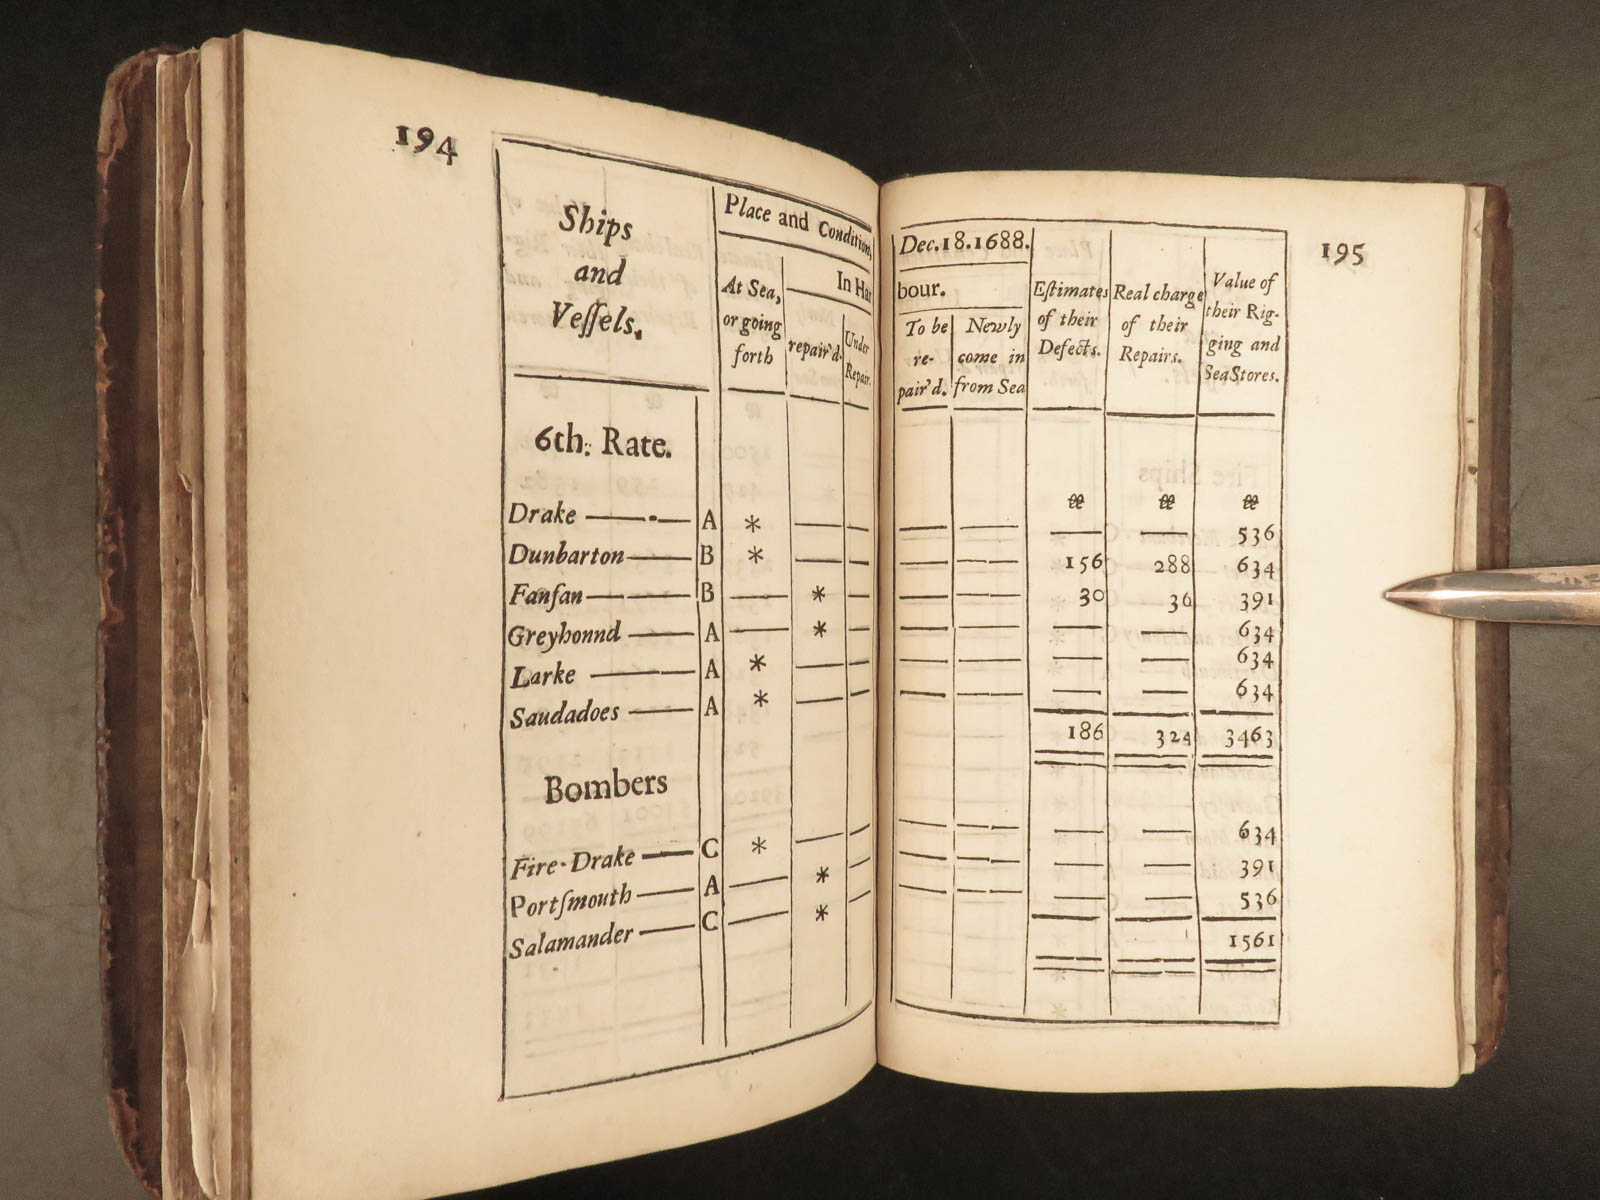 194
Ships
and
Veſſels.
Place and Condition,
At Sea,
or going
forth
In Har
repair'd.
Under
Repair.
6th: Rate.
Drake A *
Dunbarton B *
Fanfan B *
Greyhonnd A *
Larke A *
Saudadoes A *
Bombers
Fire-Drake C *
Portſmouth A *
Salamander C *
195
Dec.18.1688.
bour.
To be
re-
pair'd.
Newly
come in
from Sea
Eſtimates
of their
Defects.
Real charge
of their
Repairs.
Value of
their Rig-
ging and
Sea Stores.
℔ ℔ ℔
536
156 288 634
30 36 391
634
634
634
186 324 3463
634
391
536
1561